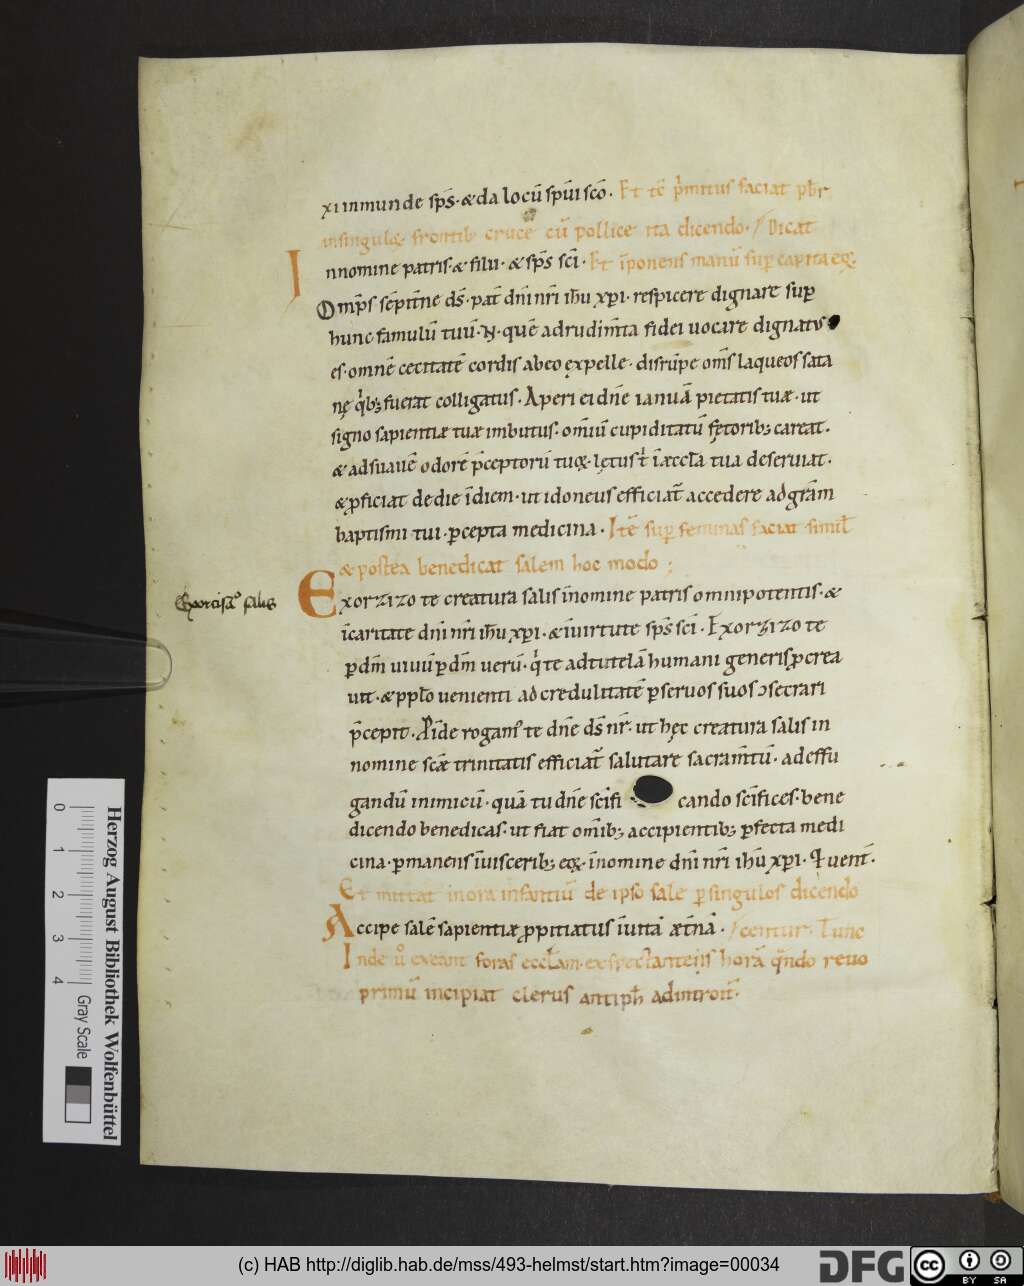 xi inmunde sp̄s · & da locū sp̄ui sc̄o. Et tc̄ p̄mitus faciat pb̄r
insingulę frontib; crucē cū pollice ita dicendo. Dicat
Innomine patris · & filii · & sp̄s sc̄i. Et īponens manū sup̄ capita eoꝝ.
Omp̄s sēpit̄ne ds̄ · pat̄ dn̄i nr̄i ih̄u xp̄i · respicere dignare sup̄
hunc famulū tuū · N · quē adrudim̄ta fidei uocare dignatus
es · omnē cecitatē cordis abeo expelle · disrūpe om̄s laqueos sata
nę q̄b; fuerat colligatus · Aperi ei dn̄e ianuā pietatis tuæ · ut
signo sapientiæ tuæ imbutus · omīū cupiditatū fętorib; careat ·
& adsuauē odorē p̄ceptorū tuoꝝ · lętus t̄ īæccl̄a tua deseruiat ·
& ꝓficiat dedie īdiem · ut idoneus efficiat̄ accedere adgr̄am
baptismi tui · ꝑcepta medicina · Itē sup̄ feminas faciat simil̄
& postea benedicat salem hoc modo ;
Exorcism̄ salis
Exorzizo te creatura salis īnomine patris omnipotentis · &
īcaritate dn̄i nr̄i ih̄u xp̄i · & īuirtute sp̄s sc̄i · Exorzizo te
ꝑ dm̄ uiuū ꝑ dm̄ uerū · q̄ te adtutelā humani generis ꝓcrea
uit · & ppl̄o uenienti ad credulitatē ꝑ seruos suos ↄsecrari
p̄cepit · Ꝓīde rogam᾽ te dn̄e ds̄ nr̄ · ut hęc creatura salis in
nomine sc̄æ trinitatis efficiat̄ salutare sacram̄tū · adeffu
gandū inimicū · quā tu dn̄e sc̄ifi cando sc̄ifices · bene
dicendo benedicas · ut fiat om̄ib; accipientib; ꝑfecta medi
cina · ꝑmanens īuiscerib; eoꝝ · īnomine dn̄i nr̄i ih̄u xp̄i · Q uent̄ ·
Et mittat inora infantiū de ipso sale ꝑ singulos dicendo
Accipe salē sapientiæ ꝓpitiatus īuitā æt̄nā · Tunc
Inde u᾽ exeant foras eccl̄am · exspectantes horā q̄ndo reuo
centur. primū incipiat clerus antiph̄ adintroit̄ ·
Herzog August Bibliothek Wolfenbüttel
0 1 2 3 4 Gray Scale
(c) HAB http://diglib.hab.de/mss/493-helmst/start.htm?image=00034
DFG
cc BY SA